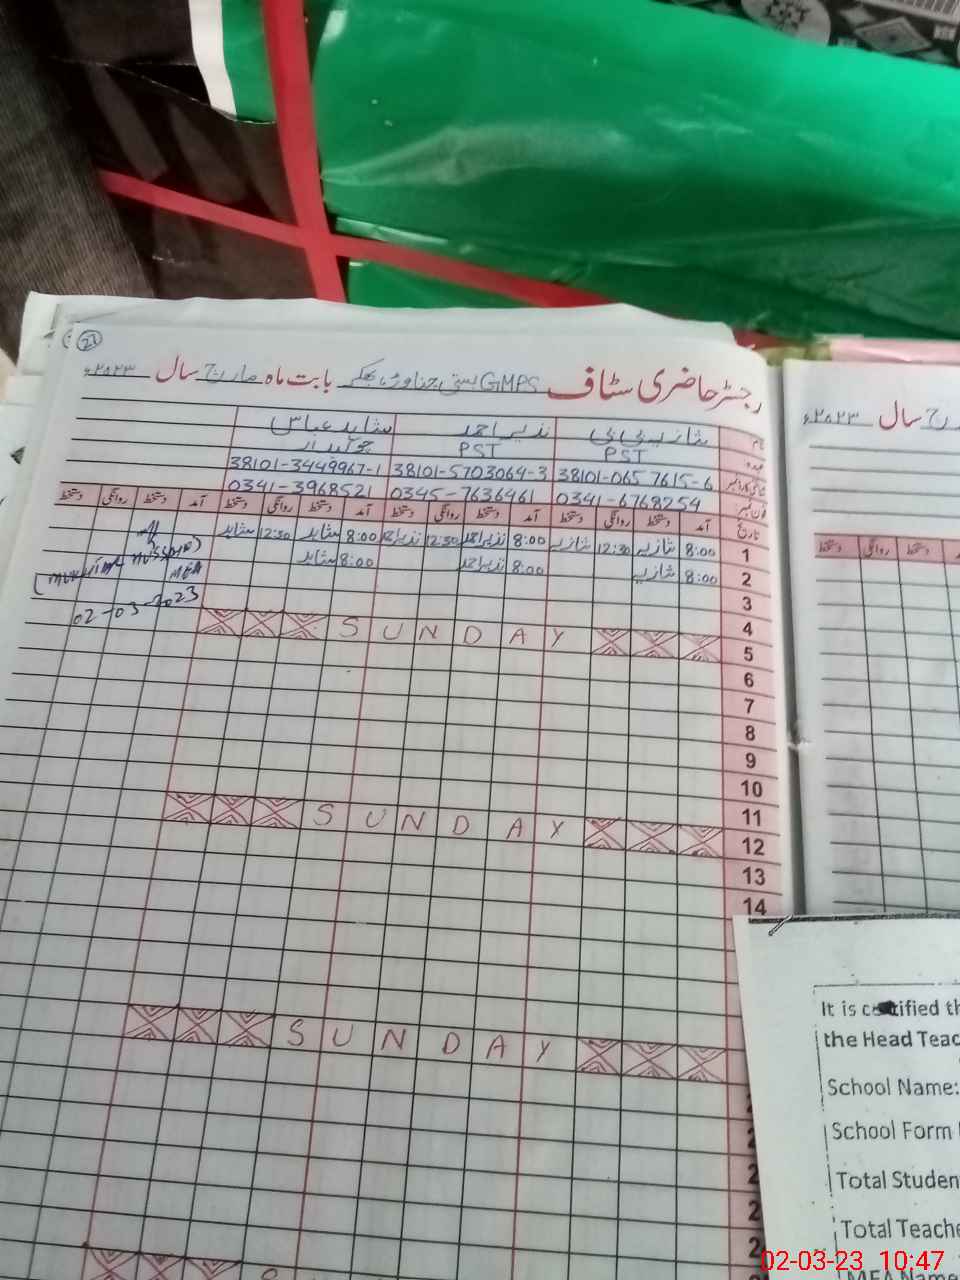 27
رجسٹر حاضری سٹاف GMPS بستی جناور، بھکر بابت ماہ مارچ سال ۲۰۲۳ء
نام شازیہ بی بی نذیر احمد شاہد عباس
عہدہ PST PST چوکیدار
شناختی کارڈ نمبر 38101-0657615-6 38101-5703064-3 38101-3449967-1
فون نمبر 0341-6768254 0345-7636461 0341-3968521
تاریخ آمد دستخط روانگی دستخط آمد دستخط روانگی دستخط آمد دستخط روانگی دستخط آمد دستخط روانگی دستخط
1 8:00 شازیہ 12:30 شازیہ 8:00 نذیر احمد 12:30 نذیر احمد 8:00 شاہد 12:30 شاہد
2 8:00 شازیہ 8:00 نذیر احمد 8:00 شاہد
MEA
02-03-2023
3
4
5 SUNDAY
6
7
8
9
10
11
12 SUNDAY
13
14
SUNDAY
رچ سال ۲۰۲۳ء
دستخط روانگی دستخط
It is certified th
the Head Teac
School Name:
School Form
Total Studen
Total Teache
MEA Name
02-03-23 10:47